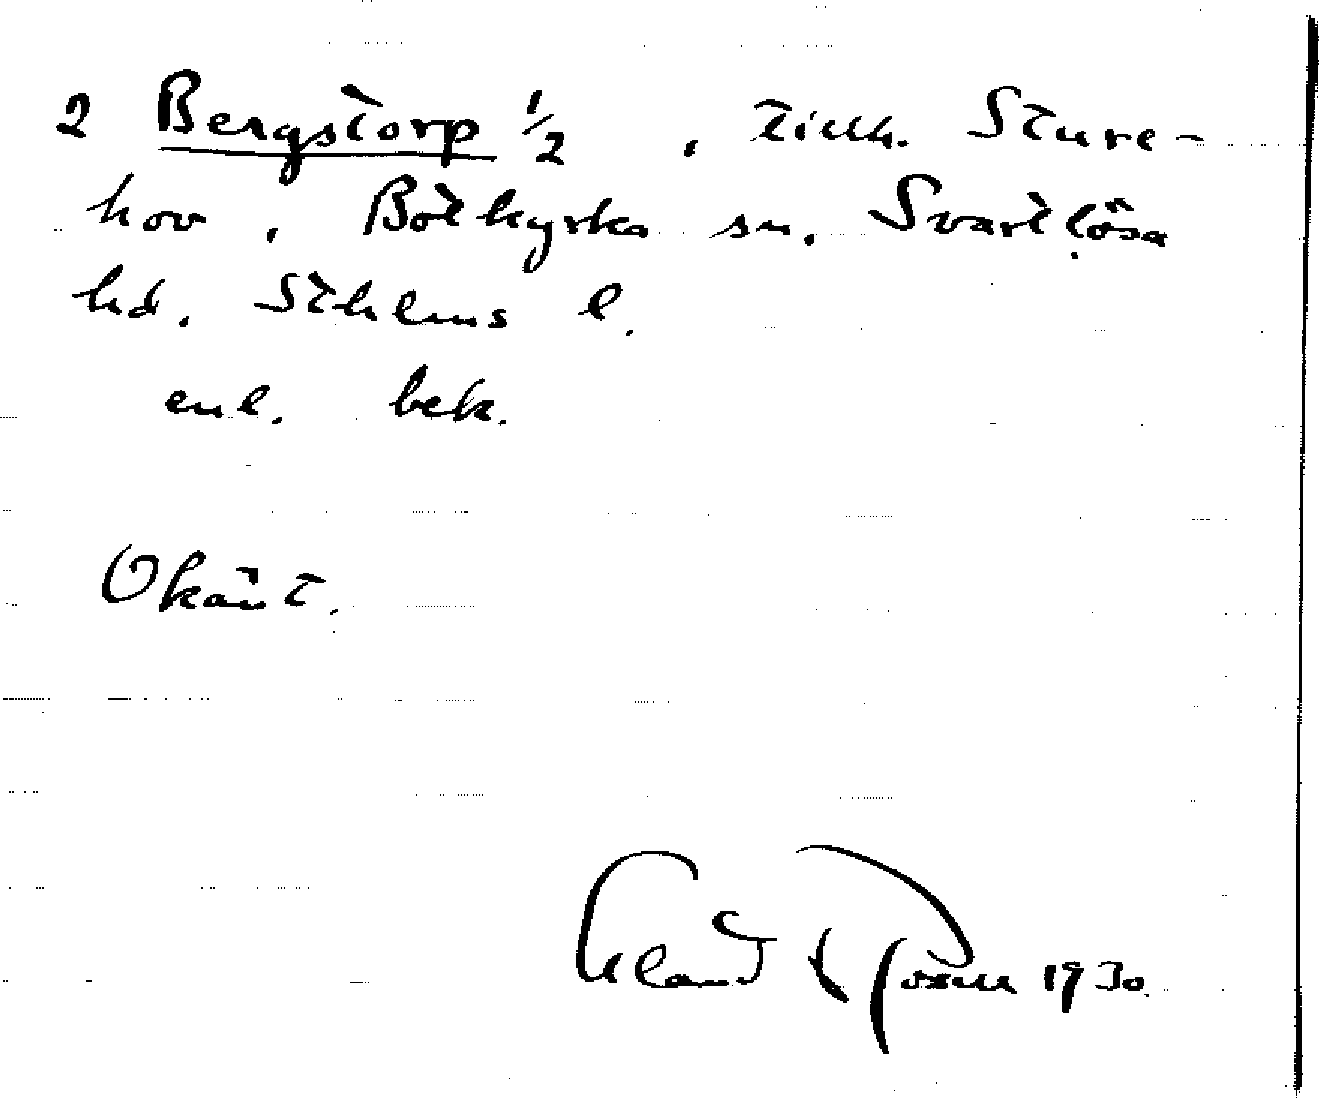 2 Bergstorp 1/2 , tillh. Sture-
hov , Botkyrka sn. Svartlösa
hd. Sthlms l.
enl. bek.
Okänt.
1930